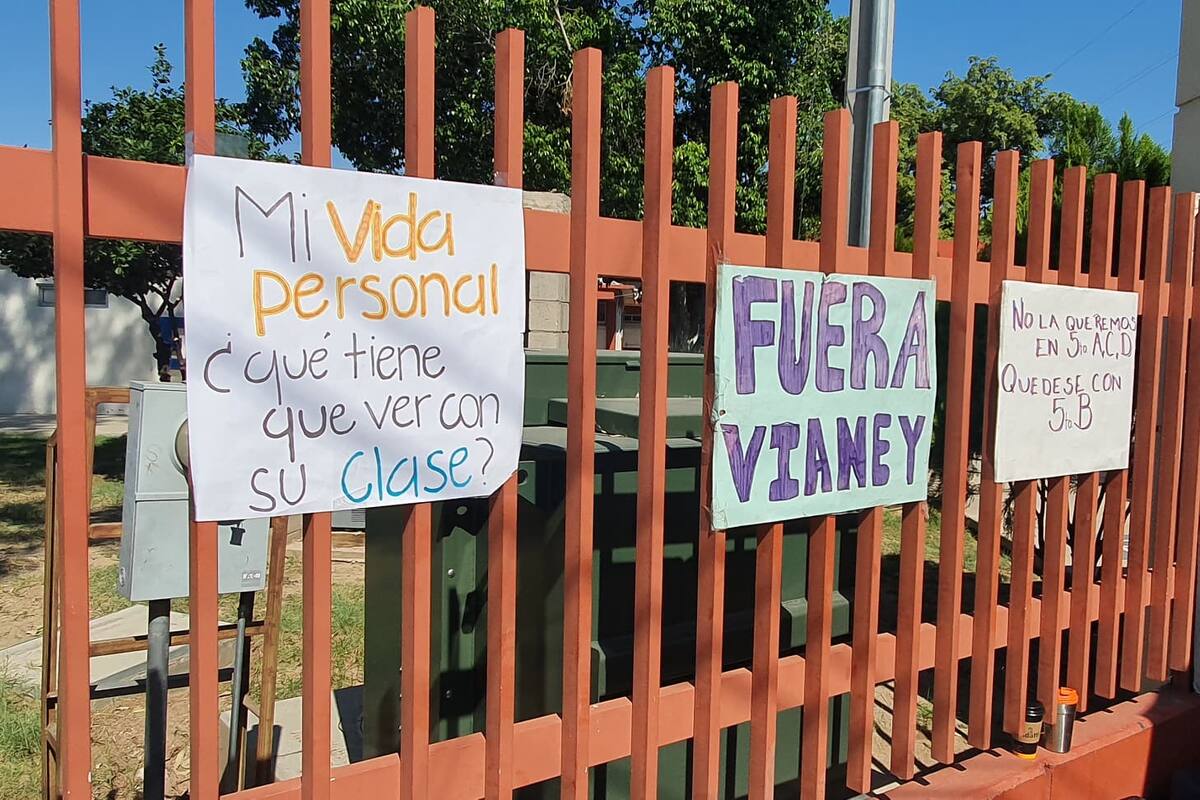 Mi Vida
personal
¿qué tiene
que ver con
su Clase?
FUERA
VIANEY
NO LA QUEREMOS
EN 5to A,C,D
QUEDESE CON
5to B